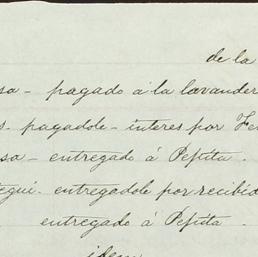 de la
sa - pagado á la lavander
s. pagadole - interes por Fe
sa - entregado á Pepita.
egui. entregadole por recibid
entregado á Pepita.
idem